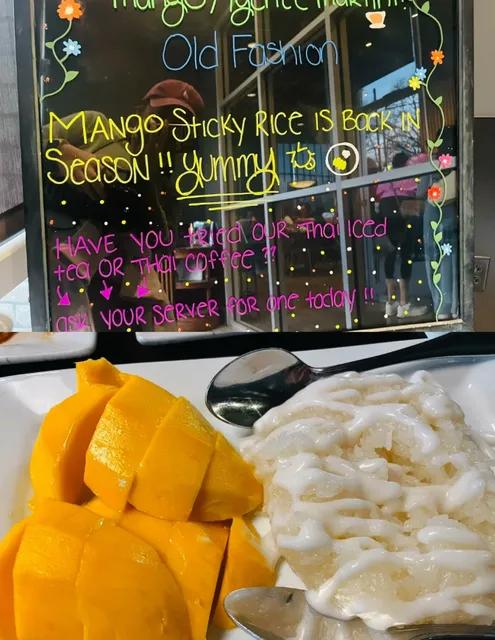 Mango / Lychee Martini!!
Old Fashion
MANGO STICKY RICE IS BACK IN
SEASON !! yummy
HAVE YOU tried OUR Thai Iced
tea OR THai coffee ??
ask YOUR SERVER for one today !!